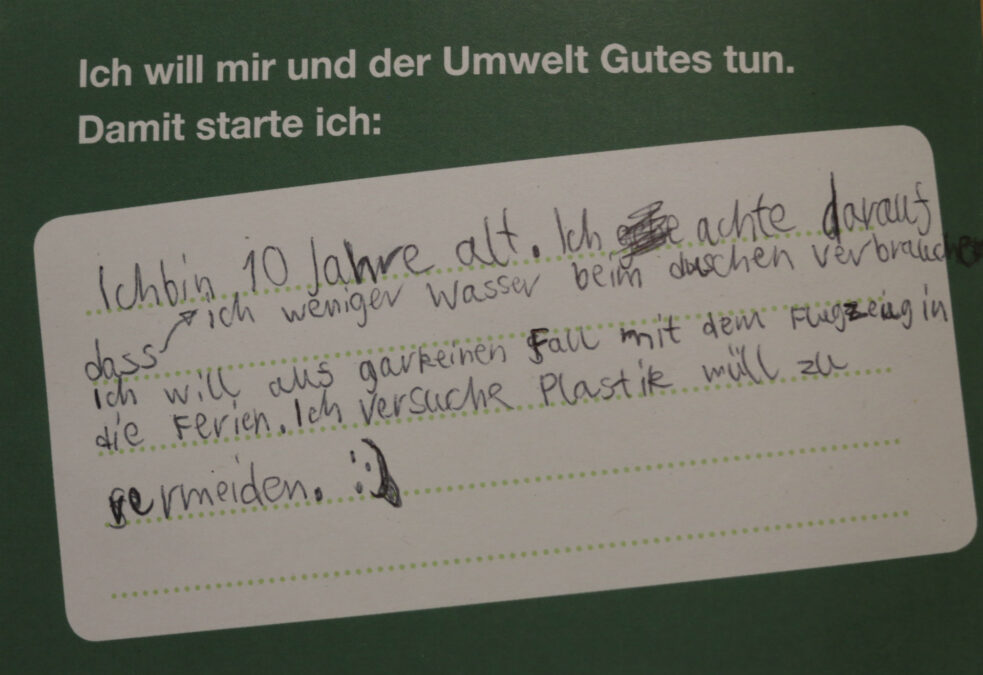 Ich will mir und der Umwelt Gutes tun.
Damit starte ich:
Ichbin 10 Jahre alt. Ich achte darauf
dass ich weniger Wasser beim duschen verbrauchen
ich will aus garkeinen Fall mit dem Flugzeug in
die Ferien. Ich versuche Plastik müll zu
vermeiden. :)